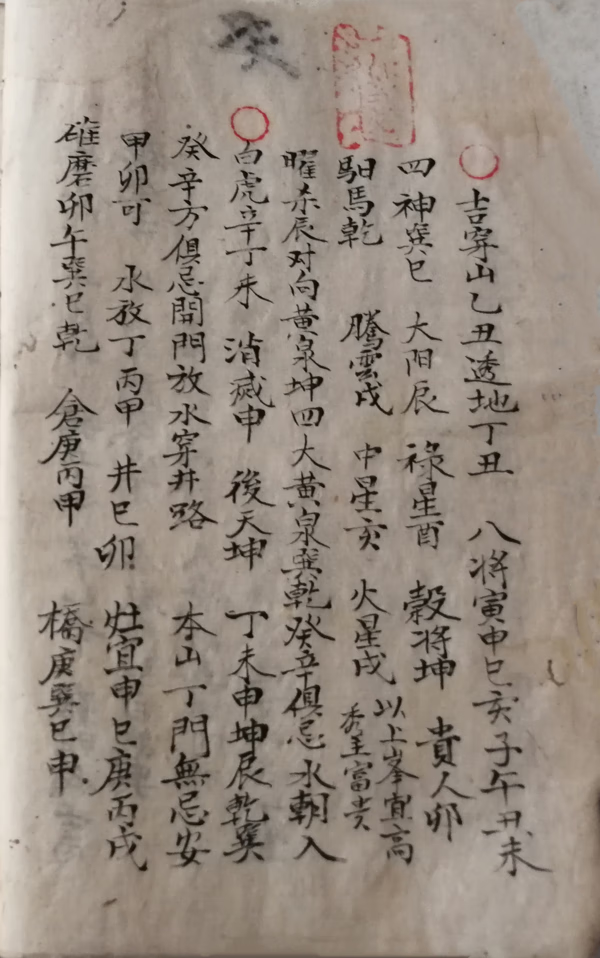 癸
○吉穿山乙丑透地丁丑 八将寅申巳亥子午丑未
四神巽巳 大阳辰 祿星酉 穀将坤 貴人卯
馹馬乾 騰雲戌 中星亥 火星戌 以上峯宜高
秀主富贵
曜杀辰对向黄泉坤四大黄泉巽乾癸辛俱忌水朝入
○白虎辛丁未 消滅申 後天坤 丁未申坤辰乾巽
癸辛方俱忌開門放水穿井路 本山丁門無忌安
甲卯可 水放丁丙甲 井巳卯 灶宜申巳庚丙戌
碓磨卯午巽巳乾 倉庚丙甲 橋庚巽巳申